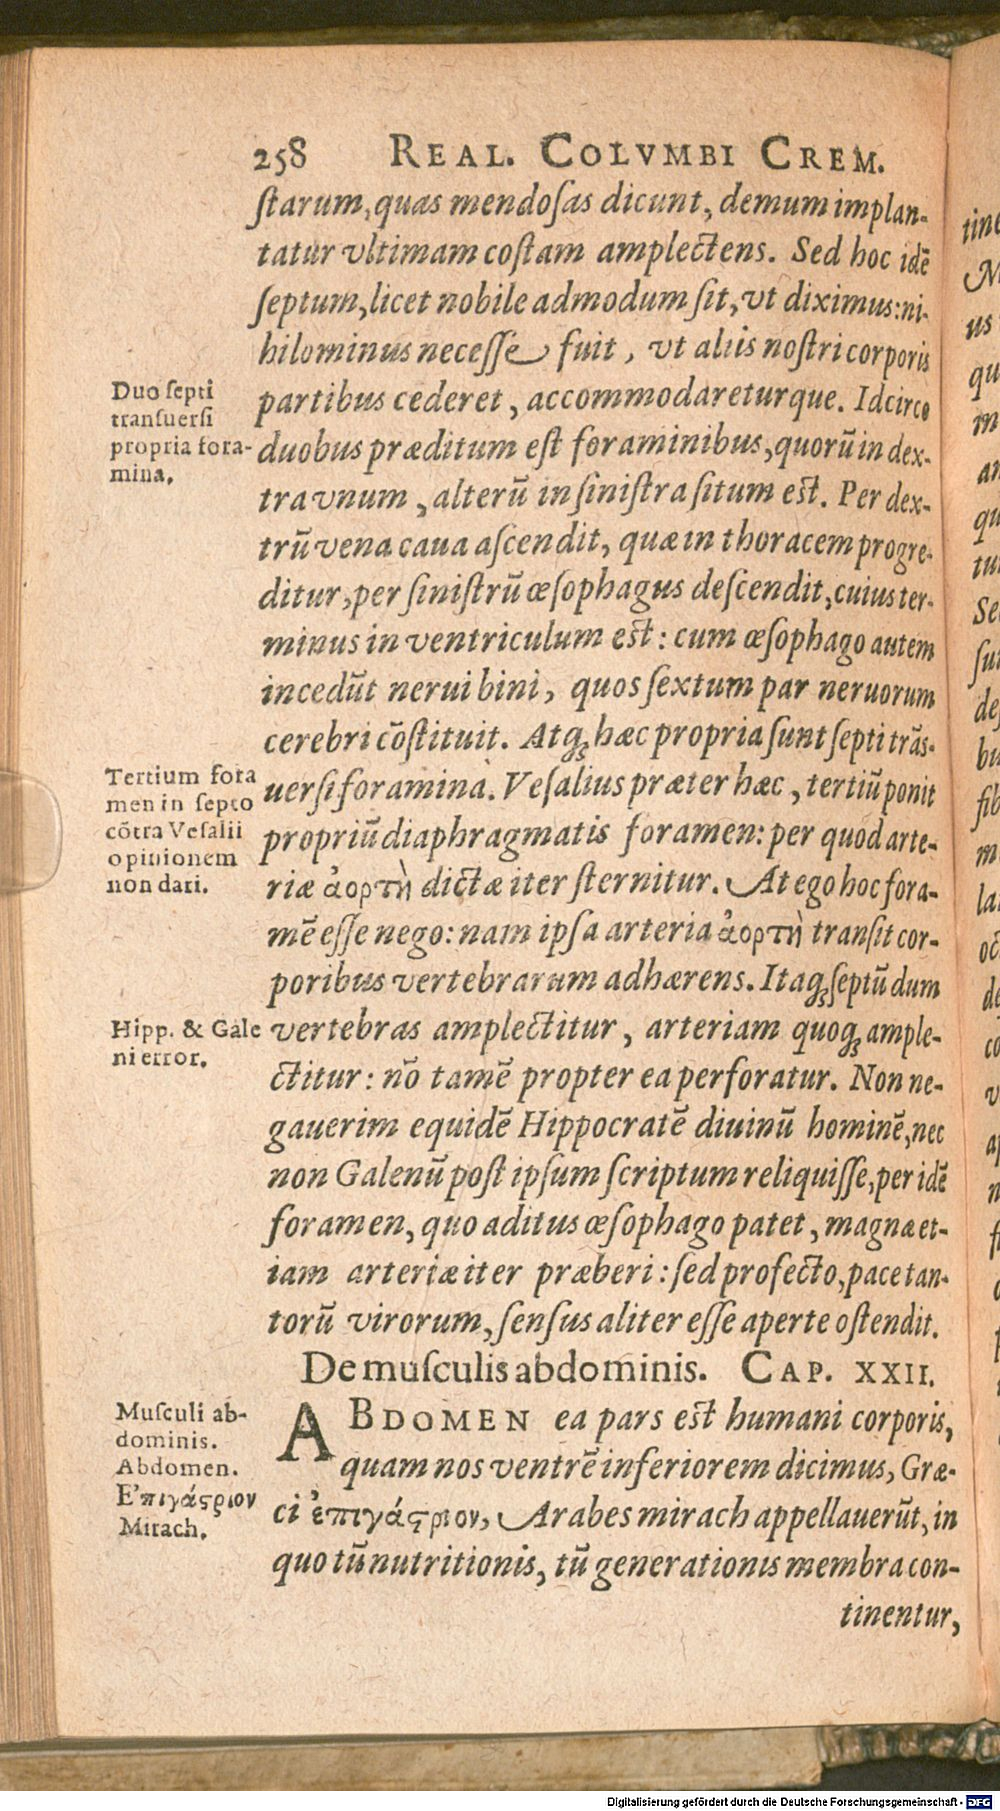 258 REAL. COLVMBI CREM.
ſtarum, quas mendoſas dicunt, demum implan-
tatur vltimam coſtam amplectens. Sed hoc idē
ſeptum, licet nobile admodum ſit, vt diximus: ni-
hilominus neceſſe fuit, vt aliis noſtri corporis
Duo ſepti
tranſuerſi
propria fora-
mina.
partibus cederet, accommodareturque. Idcirco
duobus præditum eſt foraminibus, quorū in dex-
tra vnum, alterū in ſiniſtra ſitum eſt. Per dex-
trū vena caua aſcendit, quæ in thoracem progre-
ditur, per ſiniſtrū œſophagus deſcendit, cuius ter-
minus in ventriculum eſt: cum œſophago autem
incedūt nerui bini, quos ſextum par neruorum
cerebri cōſtituit. Atq; hæc propria ſunt ſepti trãſ-
Tertium fora
men in ſepto
cōtra Veſalii
opinionem
non dari.
uerſi foramina. Veſalius præter hæc, tertiū ponit
propriū diaphragmatis foramen: per quod arte-
riæ ἀορτὴ dictæ iter ſternitur. At ego hoc fora-
mē eſſe nego: nam ipſa arteria ἀορτὴ tranſit cor-
poribus vertebrarum adhærens. Itaq; ſeptū dum
Hipp. & Gale
ni error.
vertebras amplectitur, arteriam quoq; ample-
ctitur: nō tamē propter ea perforatur. Non ne-
gauerim equidē Hippocratē diuinū hominē, nec
non Galenū poſt ipſum ſcriptum reliquiſſe, per idē
foramen, quo aditus œſophago patet, magnæ et-
iam arteriæ iter præberi: ſed profecto, pace tan-
torū virorum, ſenſus aliter eſſe aperte oſtendit.
De muſculis abdominis. CAP. XXII.
Muſculi ab-
dominis.
Abdomen.
Ε’πιγάϛριον
Mirach.
ABDOMEN ea pars eſt humani corporis,
quam nos ventrē inferiorem dicimus, Græ-
ci ἐπιγάϛριον, Arabes mirach appellauerūt, in
quo tū nutritionis, tū generationis membra con-
tinentur,
Digitalisierung gefördert durch die Deutsche Forschungsgemeinschaft - DFG